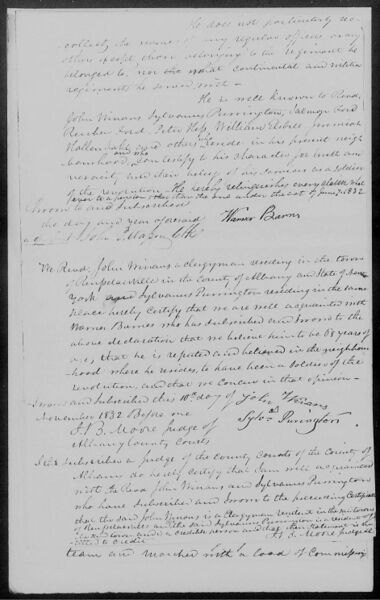 He does not particularly re-
collect the names of any regular officers or any
others except those belonging to the regiment he
belonged to, nor the what continental and militia
regiments he served with —
He is well known to Revd.
John Winans Sylvanus Purrington, Salmon Ford
Reuben Ford Peter Hoss, William
and others who reside in his present neigh
bourhood, and who can testify to his character for truth and
veracity and their belief of his services as a soldier
of the revolution — He hereby relinquishes every claim
to a pension other than the one under the act of June 7, 1832
Sworn to and Subscribed
the day and year aforesaid
Warner Barnes
John
We Revd. John Winans a Clergyman residing in the town
of Rensselaerville in the County of Albany and State of New
York and Sylvanus Purrington residing in the same
place hereby Certify that we are well acquainted with
Warner Barnes who has subscribed and sworn to the
above declaration that we believe him to be 68 years of
age, that he is reputed and believed in the neighbour
hood where he resides, to have been a Soldier of the
revolution, and that we concur in that opinion —
Sworn and Subscribed this 10th day of
November 1832 Before me
John Winans
Sylvs Purington
A. B. Moore judge of
Albany County Courts
I the Subscriber a judge of the County Courts of the County of
Albany do hereby certify that I am well acquainted
with the Revd. John Winans and Sylvanus Purrington
who have subscribed and sworn to the preceding Certificate
that the said John Winans is a Clergyman resident in the said town
of Rensselaerville and the said Sylvanus Purrington is a resident of
the said town and a credible person and that their statement is
entitled to credit
A. B. Moore judge of
team and marched with a load of Commissary